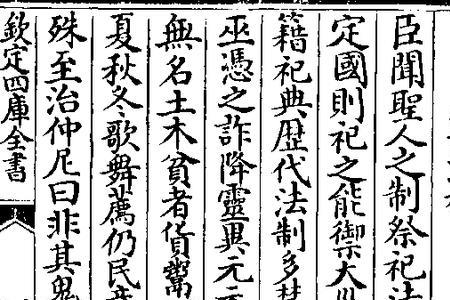 臣聞聖人之制祭祀法
定國則祀之能禦大
籍祀典歴代法制多
巫憑之詐降靈異元
無名土木貧者貨鬻
夏秋冬歌舞薦仍民
殊至治仲尼曰非其鬼
欽定四庫全書